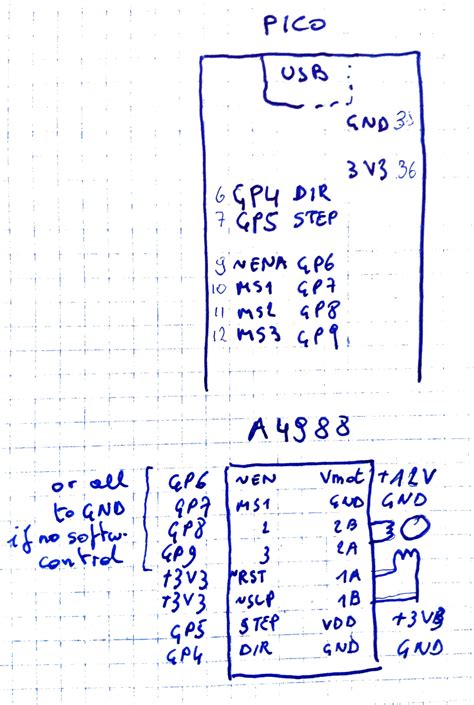 PICO
USB
GND 38
3V3 36
6 GP4 DIR
7 GP5 STEP
9 NENA GP6
10 MS1 GP7
11 MS2 GP8
12 MS3 GP9
A4988
or all
to GND
if no softw.
control
GP6 NEN Vmot +12V
GP7 MS1 GND GND
GP8 2 2B
GP9 3 2A
+3V3 NRST 1A
+3V3 NSLP 1B
GP5 STEP VDD +3V3
GP4 DIR GND GND